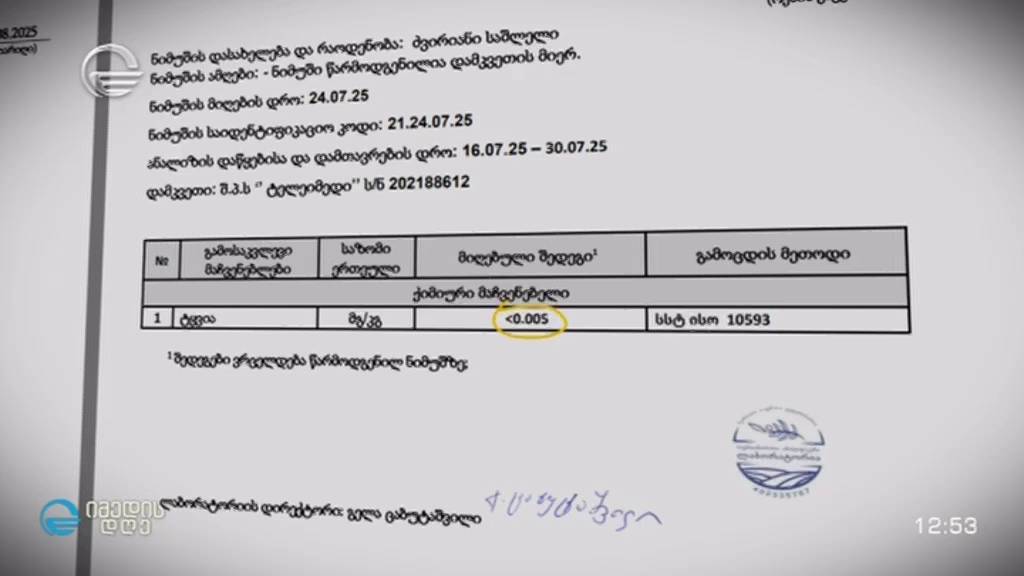 08.2025
ნიმუშის დასახელება და რაოდენობა: ძვირიანი საშლელი
ნიმუშის აღება: - ნიმუში წარმოდგენილია დამკვეთის მიერ.
ნიმუშის მიღების დრო: 24.07.25
ნიმუშის საიდენტიფიკაციო კოდი: 21.24.07.25
ანალიზის დაწყებისა და დამთავრების დრო: 16.07.25 – 30.07.25
დამკვეთი: შ.პ.ს “ ტელეიმედი” ს/ნ 202188612
№ გამოსაკვლევი მაჩვენებლები საზომი ერთეული მიღებული შედეგი¹ გამოცდის მეთოდი
ქიმიური მაჩვენებელი
1 ტყვია მგ/კგ <0.005 სსტ ისო 10593
¹ შედეგები ვრცელდება წარმოდგენილ ნიმუშზე;
ლაბორატორია
ლაბორატორიის დირექტორი: გელა ცაბუტაშვილი
იმედის
დღე
12:53